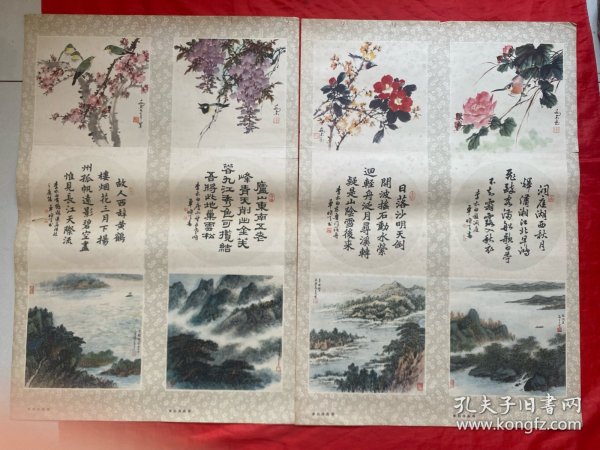 故人西辭黃鶴
樓烟花三月下揚
州孤帆遠影碧空盡
惟見長江天際流
廬山東南五老
峰青天削出金芙
蓉九江秀色可攬結
吾將此地巢雲松
日落沙明天倒
開波搖石動水縈
迴輕舟泛月尋溪轉
疑是山陰雪後來
洞庭湖西秋月
輝瀟湘江北早鴻
飛醉客滿船歌白苧
不知霜露入秋衣
孔夫子旧书网
www.kongfz.com